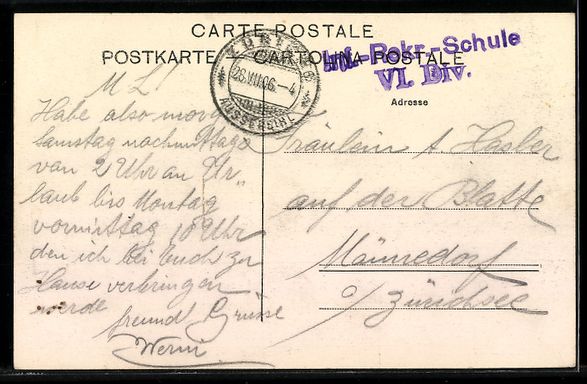 CARTE POSTALE
POSTKARTE CARTOLINA POSTALE
Inf.-Rekr.-Schule
VI. Div.
ZÜRICH
26.VII.06.-4
AUSSERSIHL
Adresse
M L!
Habe also morgen
Samstag nachmittags
von 2 Uhr an Ur-
laub bis Montag
vormittag 10 Uhr
den ich bei Euch zu
Hause verbringen
werde
freund Grüsse
Werni
Fräulein A. Hasler
auf der Platte
Männedorf
a/ Zürichsee